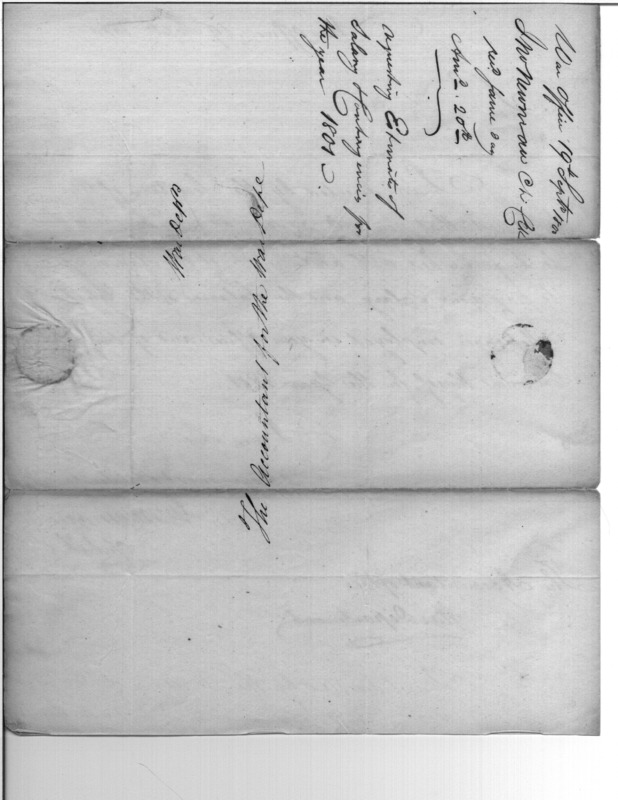 War Office 19th Sept 1800
Jno Newman Ch. Clk
recd same day
Ansd. 20th
requesting Estimate of
Salary & Contingencies for
the year 1801
War Depta
To
The Accountant for the War Depta